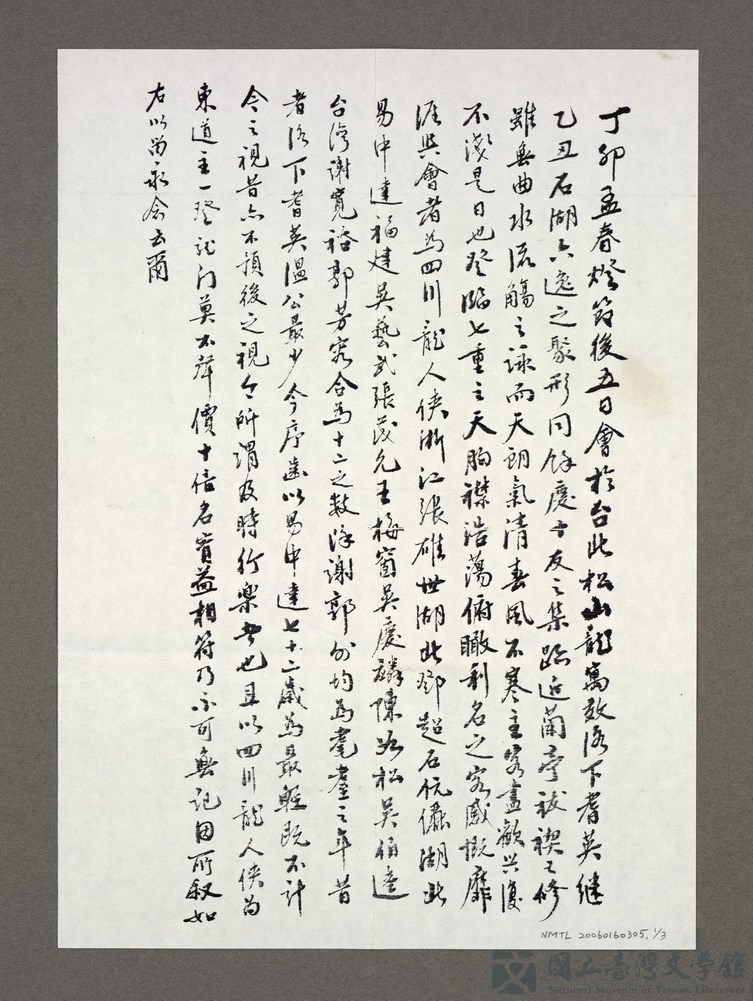 丁卯孟春燈節後五日會於台北松山龍寓效洛下耆英繼
乙丑石湖六逸之聚形同餘慶十友之集跡近蘭亭祓禊之修
雖無曲水流觴之詠而天朗氣清春風不寒主客盡歡興復
不淺是日也登臨七重之天胸襟浩蕩俯瞰利名之客感慨靡
涯與會者為四川龍人俠浙江張雄世湖北鄧超石伉儷湖北
易中達福建吳藝武張茂允王梅窗吳慶麟陳為松吳伯達
台灣謝寬裕郭芳客合為十二之數除謝郭外均為耄耋之年昔
者洛下耆英溫公最少今序齒以易中達七十二歲為最輕既不計
今之視昔亦不預後之視今所謂及時行樂者也且以四川龍人俠為
東道主一登龍門莫不聲價十倍名實益相符乃不可無記因所叙如
右以留永念云爾
NMTL 20060160305, 1/3
國立臺灣文學館
National Museum of Taiwan Literature